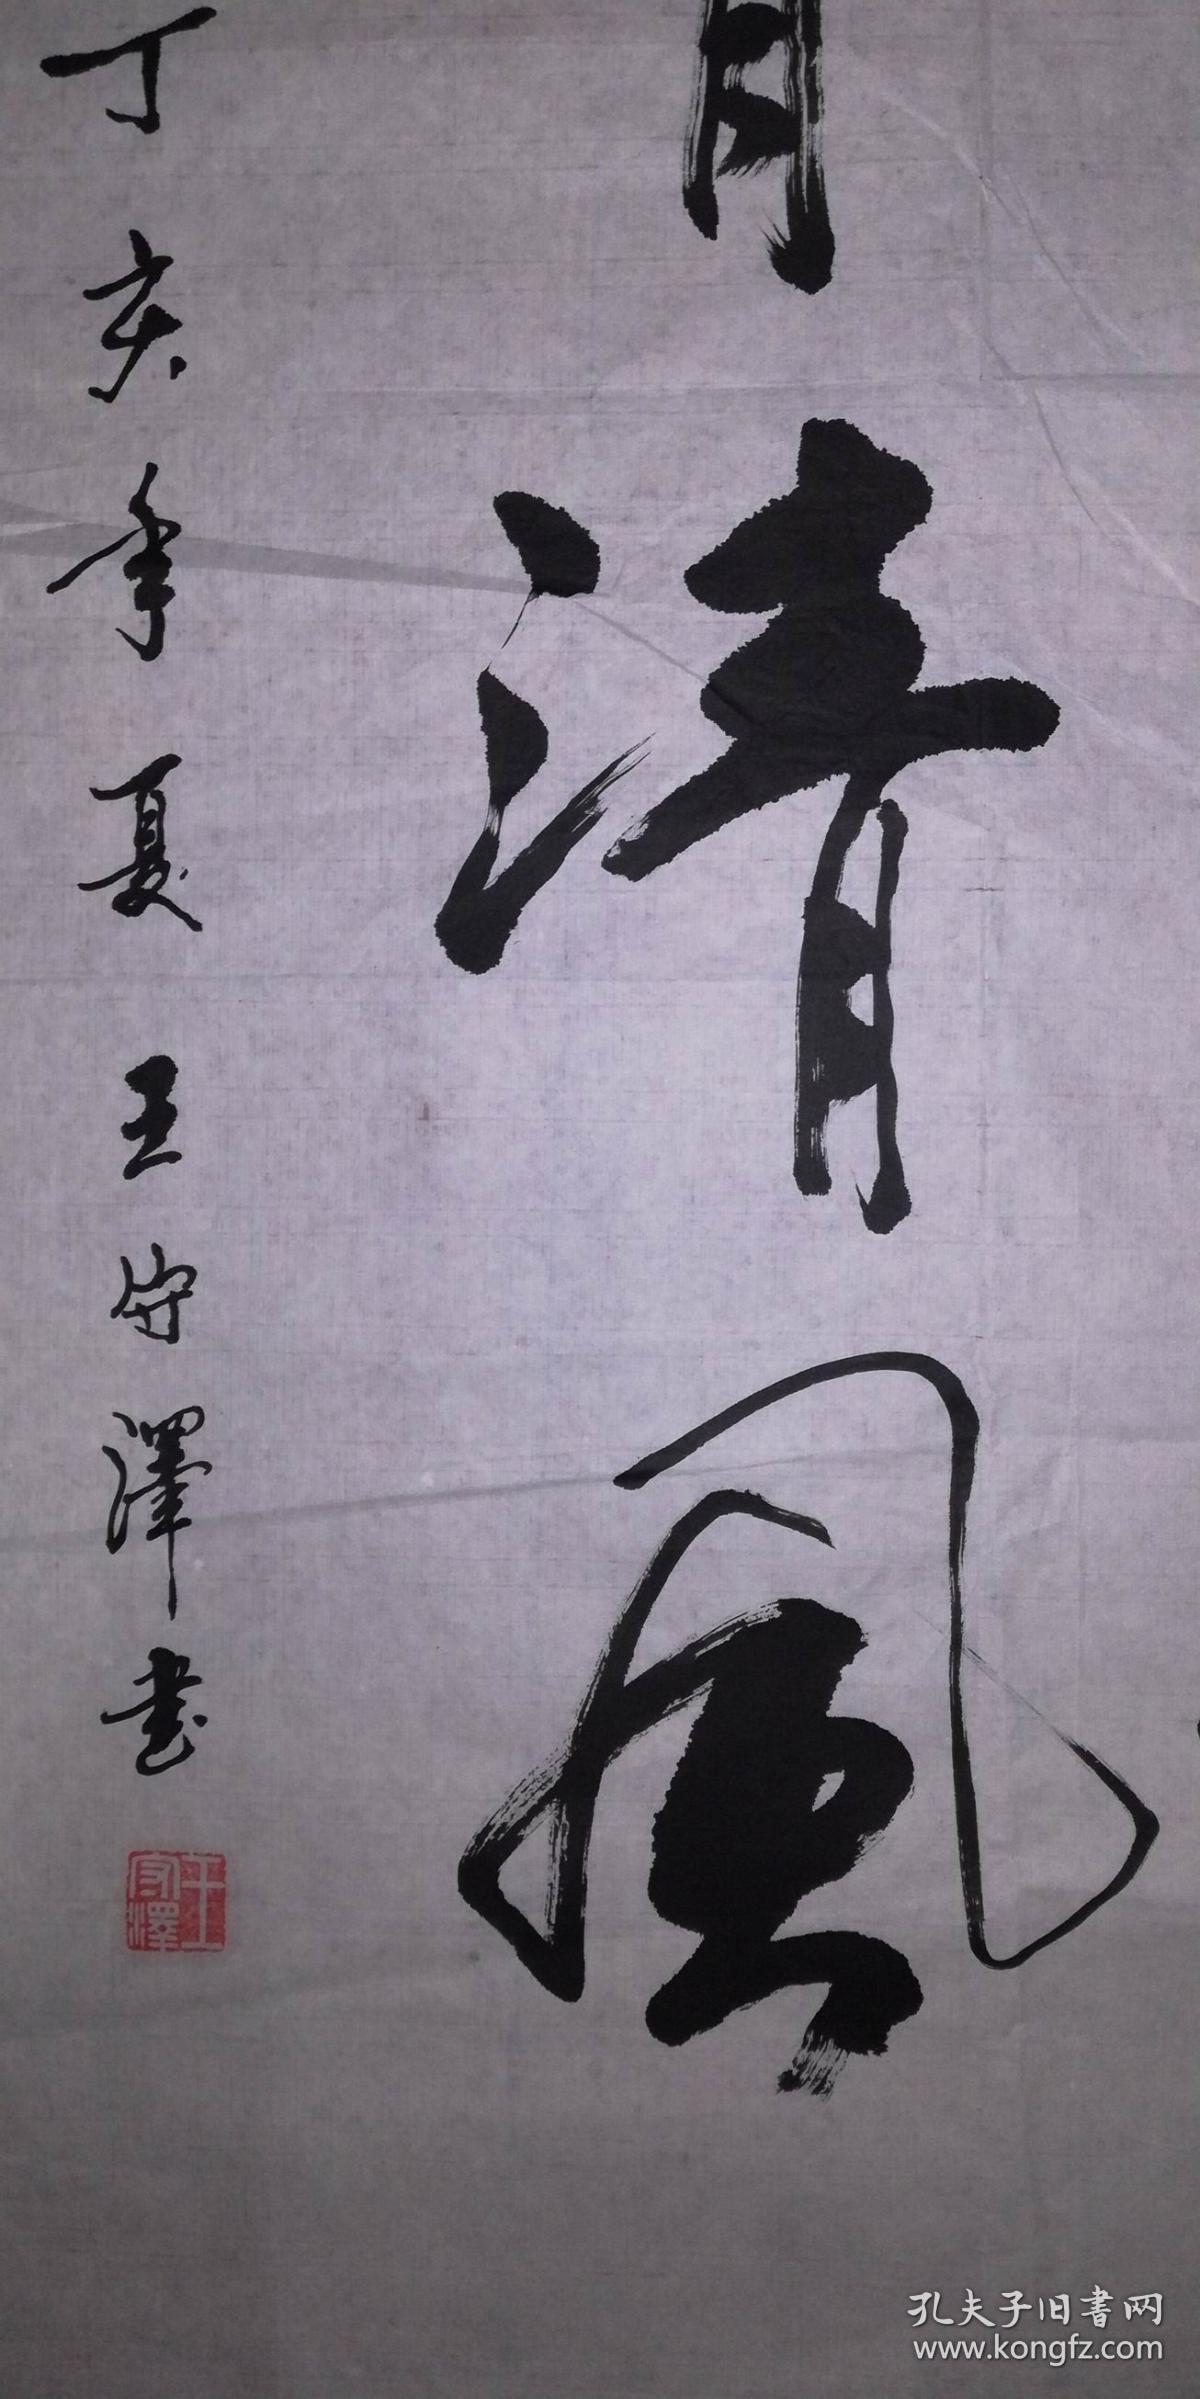 清風
丁亥年夏王守澤書
王守澤
孔夫子旧書网
www.kongfz.com